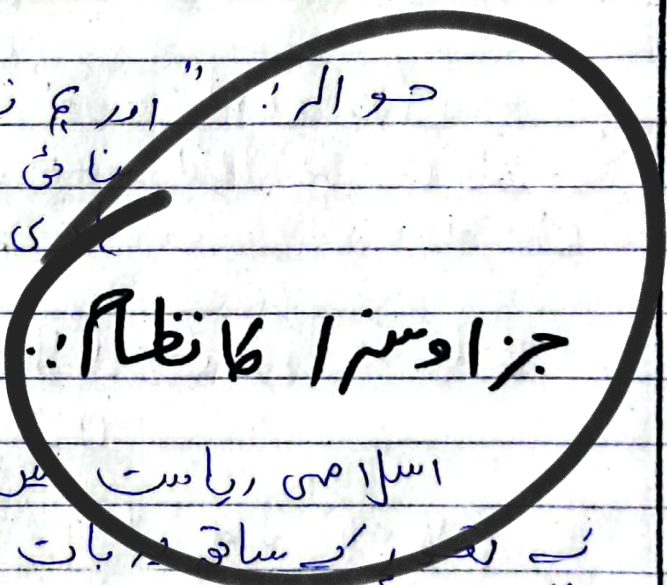 حوالہ: "اور ہم
بنائی
جزا و سزا کا نظام:
اسلامی ریاست میں
کے ساتھ یہ بات